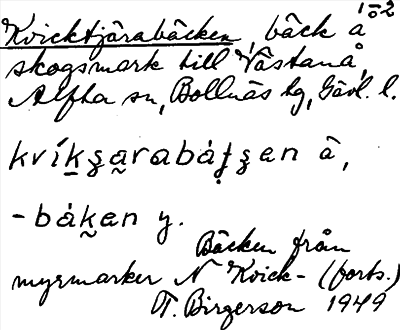 1-2
Kvicktjärabäcken, bäck å
skogsmark till Västanå,
Alfta sn, Bollnäs tg, Gävl. l.
kvíḵʂa̰rabát̯ʂen â,
-bák̰en y.
Bäcken från
myrmarker N Kvick- (forts.)
T. Birgerson 1949